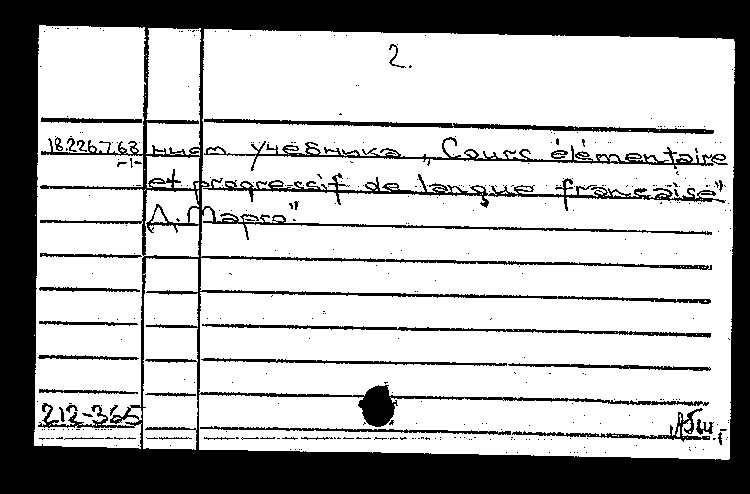 2.
18.226.7.68 нием учебника „Cours élémentaire
-1- et progressif de langue française"
Д. Марго."
212-365